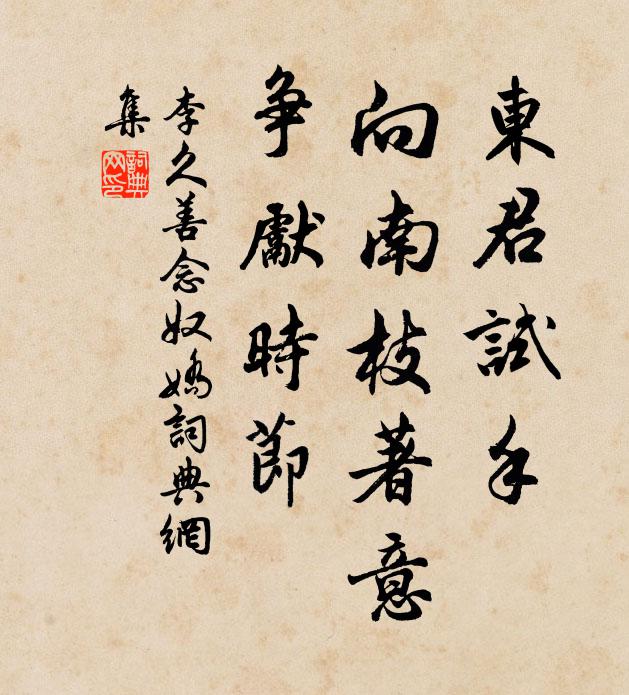 東君試手
向南枝著意
爭獻時節
李久善念奴嬌詞典網
集
詞典
网印